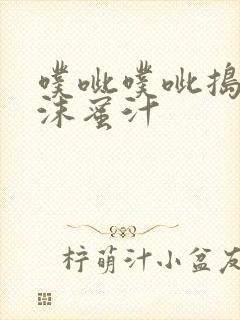 噗呲噗呲搗
沫蜜汁
柠萌汁小盆友